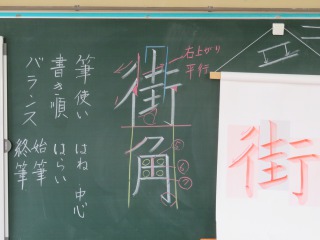 街角
右上がり
平行
⑤
⑥
⑦
筆使い はね 中心
書き順 はらい
バランス 始筆
終筆
街